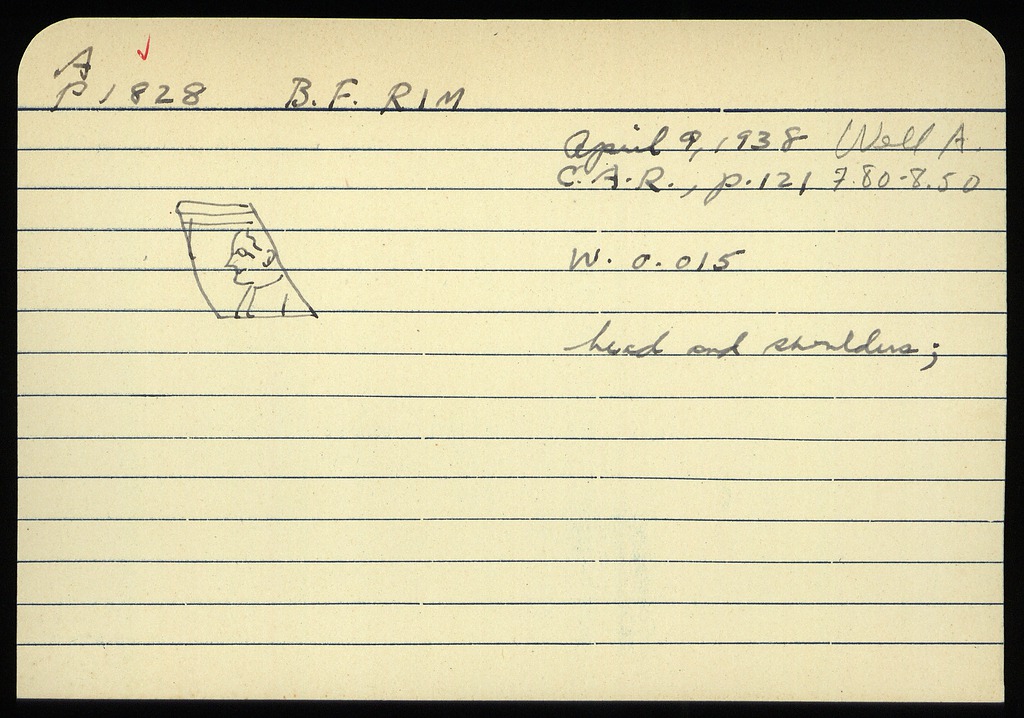 A
P 1828 B. F. RIM
April 9, 1938 Well A.
C. A. R., p. 121 7.80-8.50
W. 0.015
head and shoulders;